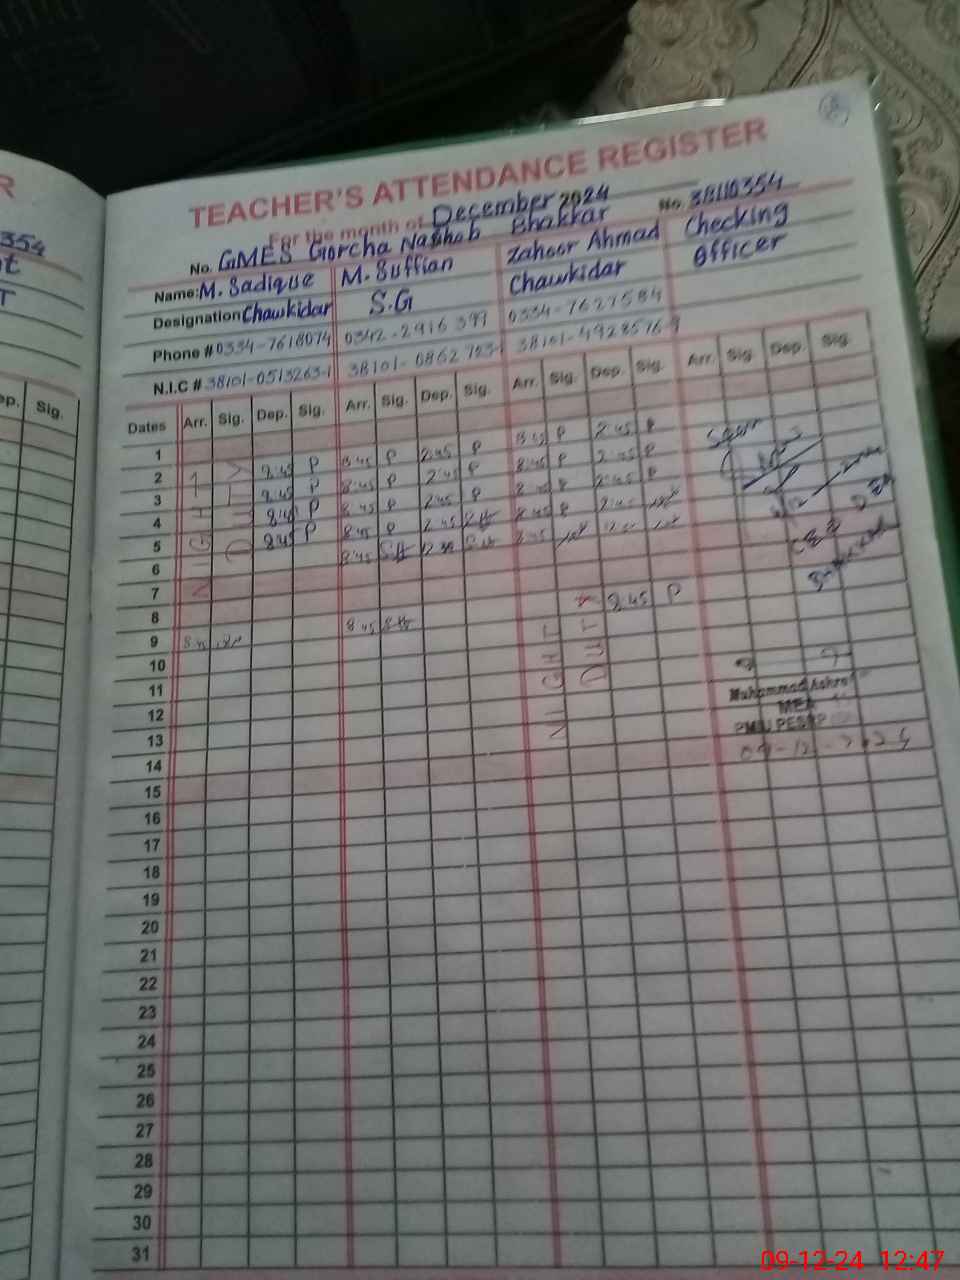 R
TEACHER'S ATTENDANCE REGISTER
For the month of December 2024 No. 38110354
354
No. GMES Gorcha Nashab Bhakkar
Name: M. Sadique M. Suffian Zahoor Ahmad Checking
Designation Chawkidar S.G Chawkidar Officer
Phone # 0334-7618074 0342-2916399 0334-7627584
N.I.C # 38101-0513263-1 38101-0862753-1 38101-4928576-9
ep. Sig.
Dates Arr. Sig. Dep. Sig. Arr. Sig. Dep. Sig. Arr. Sig. Dep. Sig. Arr. Sig. Dep. Sig.
1
2 8:45 P 8:45 P 2:45 P 8:45 P 2:45 P
3 8:45 P 8:45 P 2:45 P 8:45 P 2:45 P
4 8:45 P 8:45 P 2:45 P 8:45 P 2:45 P
5 8:45 P 8:45 P 2:45 8:45 P 2:45
6 8:45 12:30 8:45
7
8 8:45 P
9 8:45
10
11
12
13
14
15
16
17
18
19
20
21
22
23
24
25
26
27
28
29
30
31
NIGHT
NIGHT
DUTY
Muhammad Ashraf
MEA
PMIU PESRP
09-12-2024
09-12-24 12:47